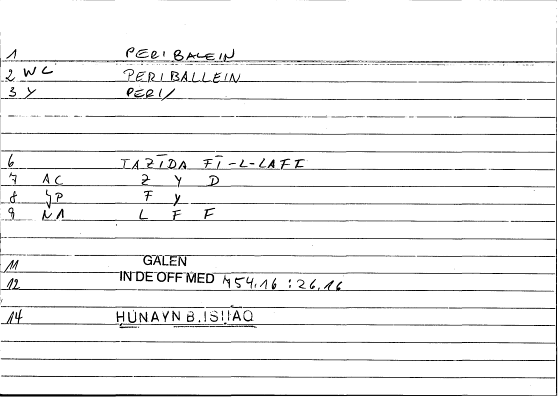 1 PERIBALEIN
2 WC PERIBALLEIN
3 Y PERI/
6 TAZĪDA FĪ-L-LAFF
7 AC Z Y D
8 JP F Y
9 NA L F F
11 GALEN
12 IN DE OFF MED 754.16 : 26.16
14 HUNAYN B.ISHAQ